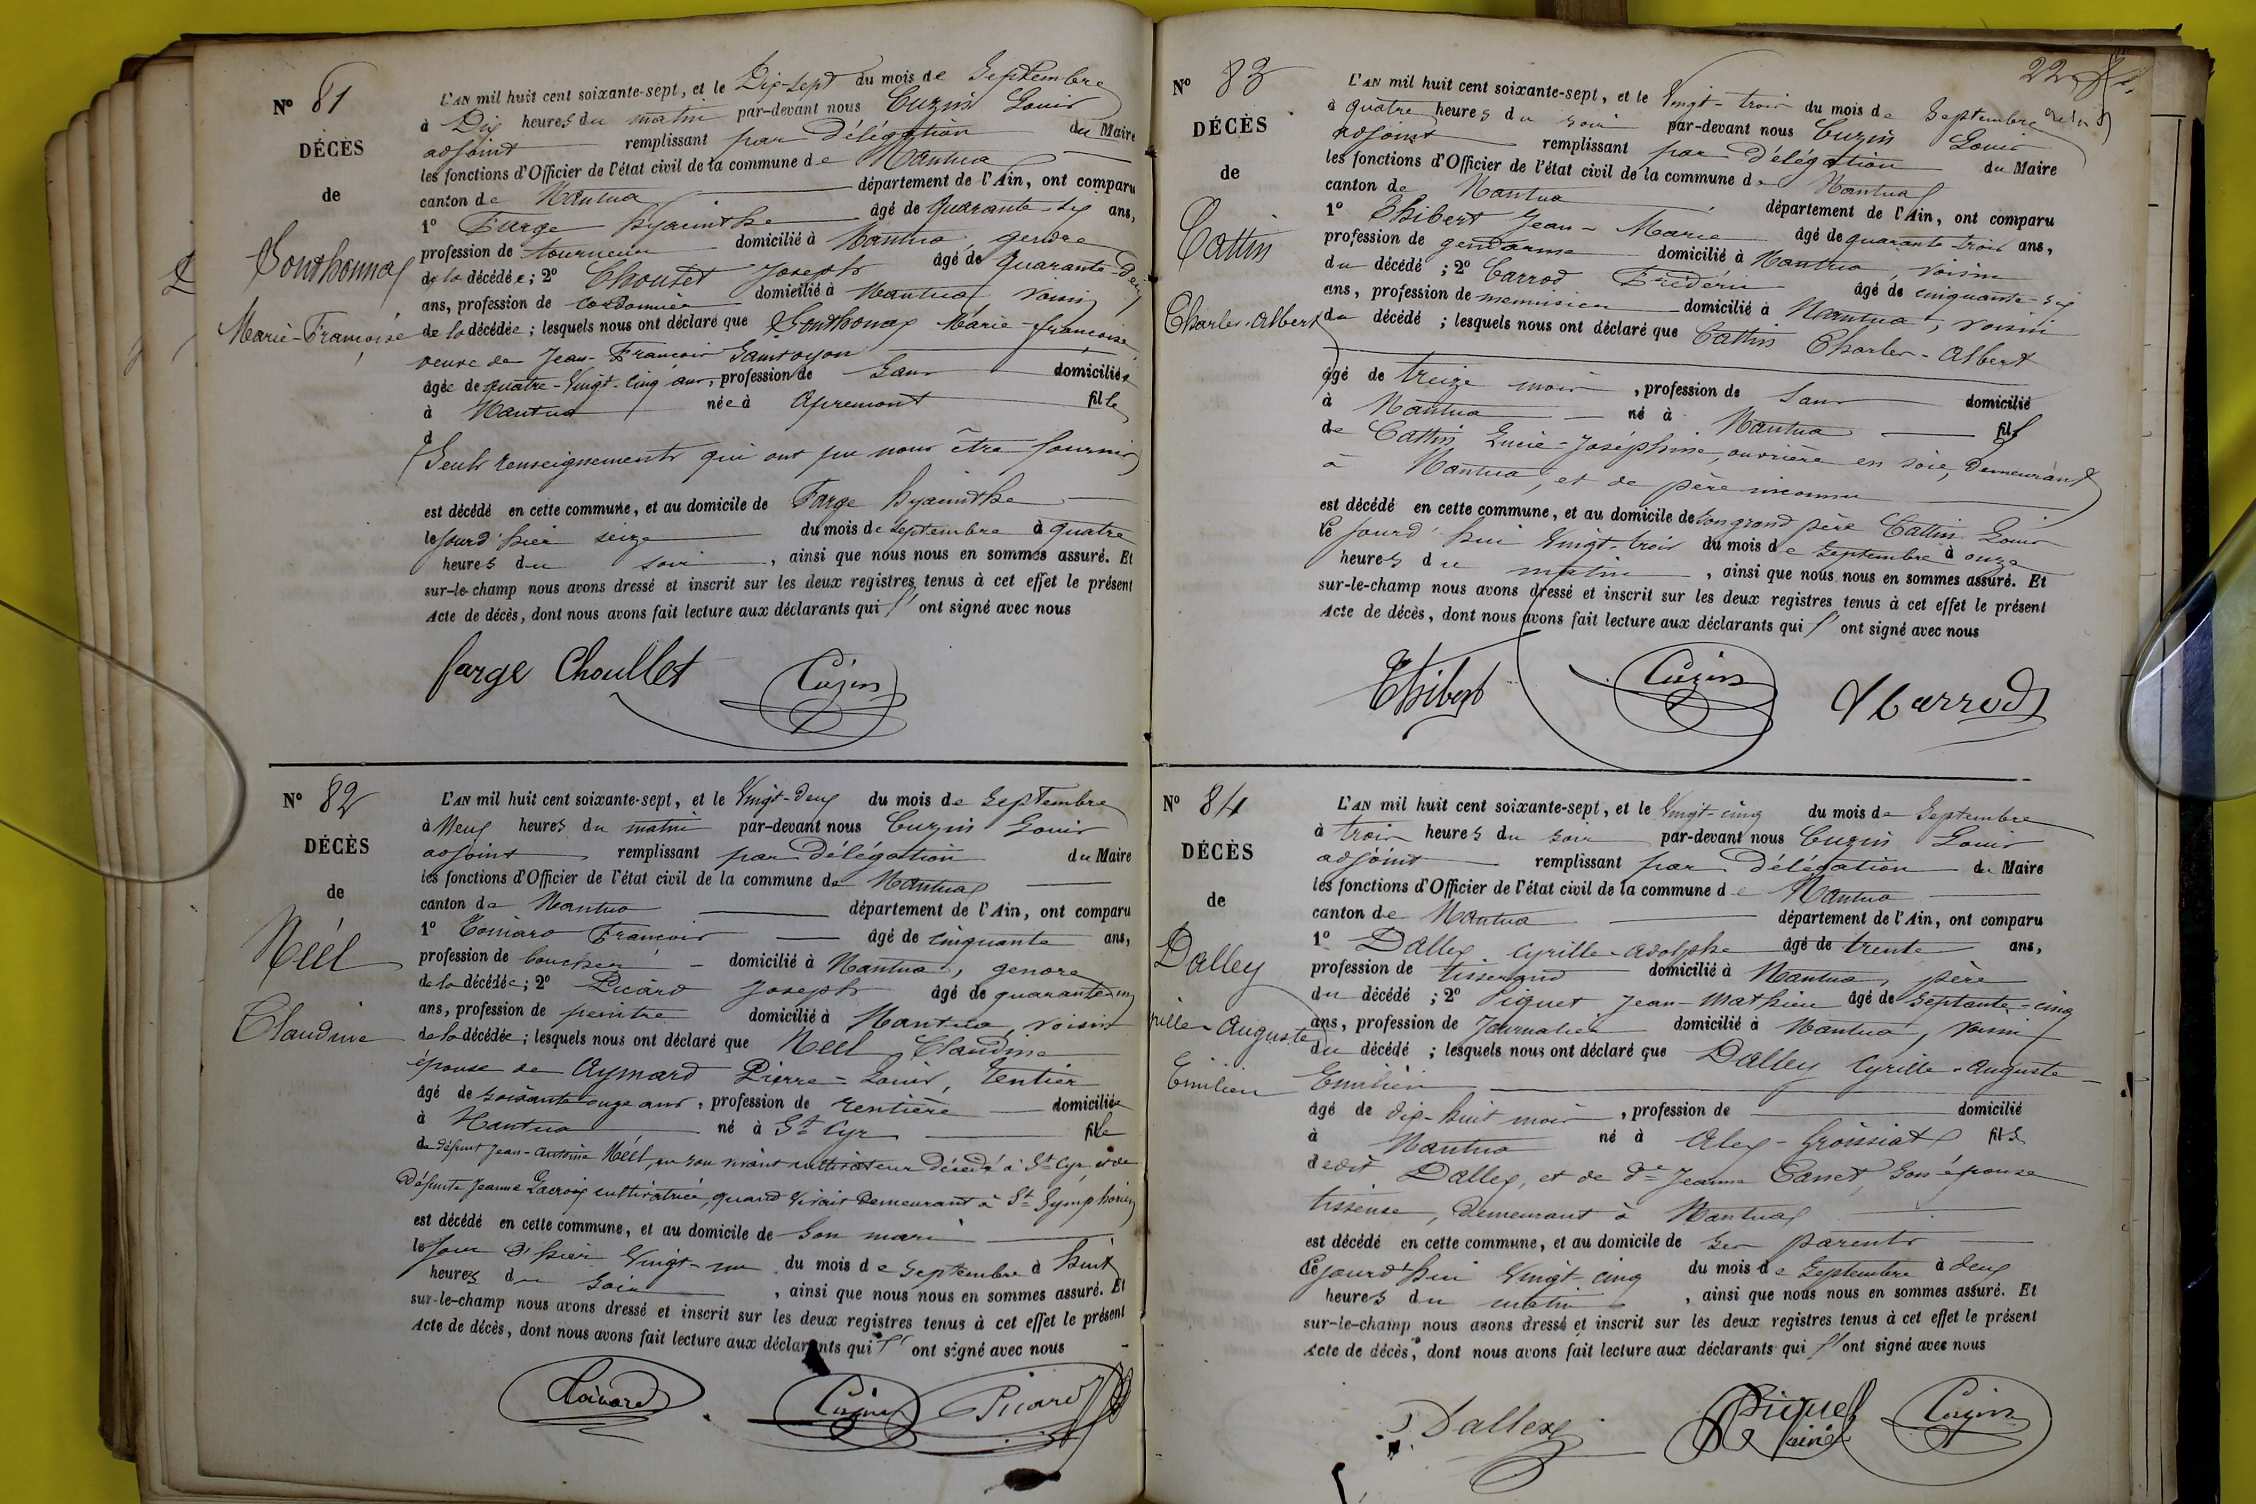 N° 81
DÉCÈS
de
Gonthonnax
Marie-Françoise
L'AN mil huit cent soixante-sept, et le Dix-sept du mois de Septembre
à Dix heures du matin par-devant nous Cuzin Louis
adjoint remplissant par Délégation du Maire
les fonctions d'Officier de l'état civil de la commune de Nantua
canton de Nantua département de l'Ain, ont comparu
1° Farge hyacinthe âgé de quarante-six ans,
profession de tourneur domicilié à Nantua, gendre
de la décédée; 2° Choulet Joseph âgé de quarante-Deux
ans, profession de cordonnier domicilié à Nantua, voisin
de la décédée; lesquels nous ont déclaré que Gonthonax Marie-françoise,
veuve de Jean-François Saintoyon
âgée de quatre-vingt-cinq ans, profession de Sans domiciliée
à Nantua née à Apremont fille
d
(Seuls renseignements qui ont pu nous être fournis)
est décédé en cette commune, et au domicile de Farge hyacinthe
le jourd'hier seize du mois de Septembre à quatre
heures du soir, ainsi que nous nous en sommes assuré. Et
sur-le-champ nous avons dressé et inscrit sur les deux registres tenus à cet effet le présent
Acte de décès, dont nous avons fait lecture aux déclarants qui l'ont signé avec nous
farge Choullet Cuzin
N° 82
DÉCÈS
de
Néél
Claudine
L'AN mil huit cent soixante-sept, et le Vingt-deux du mois de Septembre
à Neuf heures du matin par-devant nous Cuzin Louis
adjoint remplissant par Délégation du Maire
les fonctions d'Officier de l'état civil de la commune de Nantua
canton de Nantua département de l'Ain, ont comparu
1° François âgé de cinquante ans,
profession de boucher domicilié à Nantua, gendre
de la décédée; 2° Picard Joseph âgé de quarante-cinq
ans, profession de peintre domicilié à Nantua, voisin
de la décédée; lesquels nous ont déclaré que Néél Claudine
épouse de Aymard Pierre-Louis, rentier
âgé de soixante onze ans, profession de rentière domiciliée
à Nantua né à St Cyr fille
de défunt Jean-Antoine Néél, en son vivant cultivateur Décédé à St Cyr et de
Défunte Jeanne Lacroix cultivatrice, quand vivait Demeurant à St Symphorien
est décédé en cette commune, et au domicile de Son mari
le Jour d'hier Vingt-un du mois de Septembre à huit
heures du Soir, ainsi que nous nous en sommes assuré. Et
sur-le-champ nous avons dressé et inscrit sur les deux registres tenus à cet effet le présent
Acte de décès, dont nous avons fait lecture aux déclarants qui l'ont signé avec nous
Cuzin Picard
22
N° 83
DÉCÈS
de
Cattin
Charles-Albert
L'AN mil huit cent soixante-sept, et le Vingt-trois du mois de Septembre
à quatre heures du soir par-devant nous Cuzin Louis
adjoint remplissant par Délégation du Maire
les fonctions d'Officier de l'état civil de la commune de Nantua
canton de Nantua département de l'Ain, ont comparu
1° Thibert Jean-Marie âgé de quarante trois ans,
profession de gendarme domicilié à Nantua, voisin
du décédé; 2° Carrod Frédéric âgé de cinquante-six
ans, profession de menuisier domicilié à Nantua, voisin
du décédé; lesquels nous ont déclaré que Cattin Charles-Albert
âgé de treize mois, profession de Sans domicilié
à Nantua né à Nantua fils
de Cattin Lucie-Joséphine, ouvrière en soie, Demeurant
à Nantua, et de père inconnu
est décédé en cette commune, et au domicile de son grand père Cattin Louis
le jourd'hui Vingt-trois du mois de Septembre à onze
heures du matin, ainsi que nous nous en sommes assuré. Et
sur-le-champ nous avons dressé et inscrit sur les deux registres tenus à cet effet le présent
Acte de décès, dont nous avons fait lecture aux déclarants qui l'ont signé avec nous
Thibert Cuzin Carrod
N° 84
DÉCÈS
de
Dalley
rille-Auguste
Emilien
L'AN mil huit cent soixante-sept, et le Vingt-cinq du mois de Septembre
à trois heures du soir par-devant nous Cuzin Louis
adjoint remplissant par Délégation du Maire
les fonctions d'Officier de l'état civil de la commune de Nantua
canton de Nantua département de l'Ain, ont comparu
1° Dallex Cyrille-Adolphe âgé de trente ans,
profession de tisserand domicilié à Nantua, père
du décédé; 2° Piquet Jean-Mathieu âgé de Septante-cinq
ans, profession de Journalier domicilié à Nantua, voisin
du décédé; lesquels nous ont déclaré que Dalley Cyrille-Auguste
Emilien
âgé de dix-huit mois, profession de domicilié
à Nantua né à Alex-Groissiat fils
de dit Dallex, et de De Jeanne Canet, Son épouse
tisseuse, Demeurant à Nantua
est décédé en cette commune, et au domicile de Ses parents
le jourd'hui Vingt-cinq du mois de Septembre à deux
heures du matin, ainsi que nous nous en sommes assuré. Et
sur-le-champ nous avons dressé et inscrit sur les deux registres tenus à cet effet le présent
Acte de décès, dont nous avons fait lecture aux déclarants qui l'ont signé avec nous
Dallex Piquet ainé Cuzin